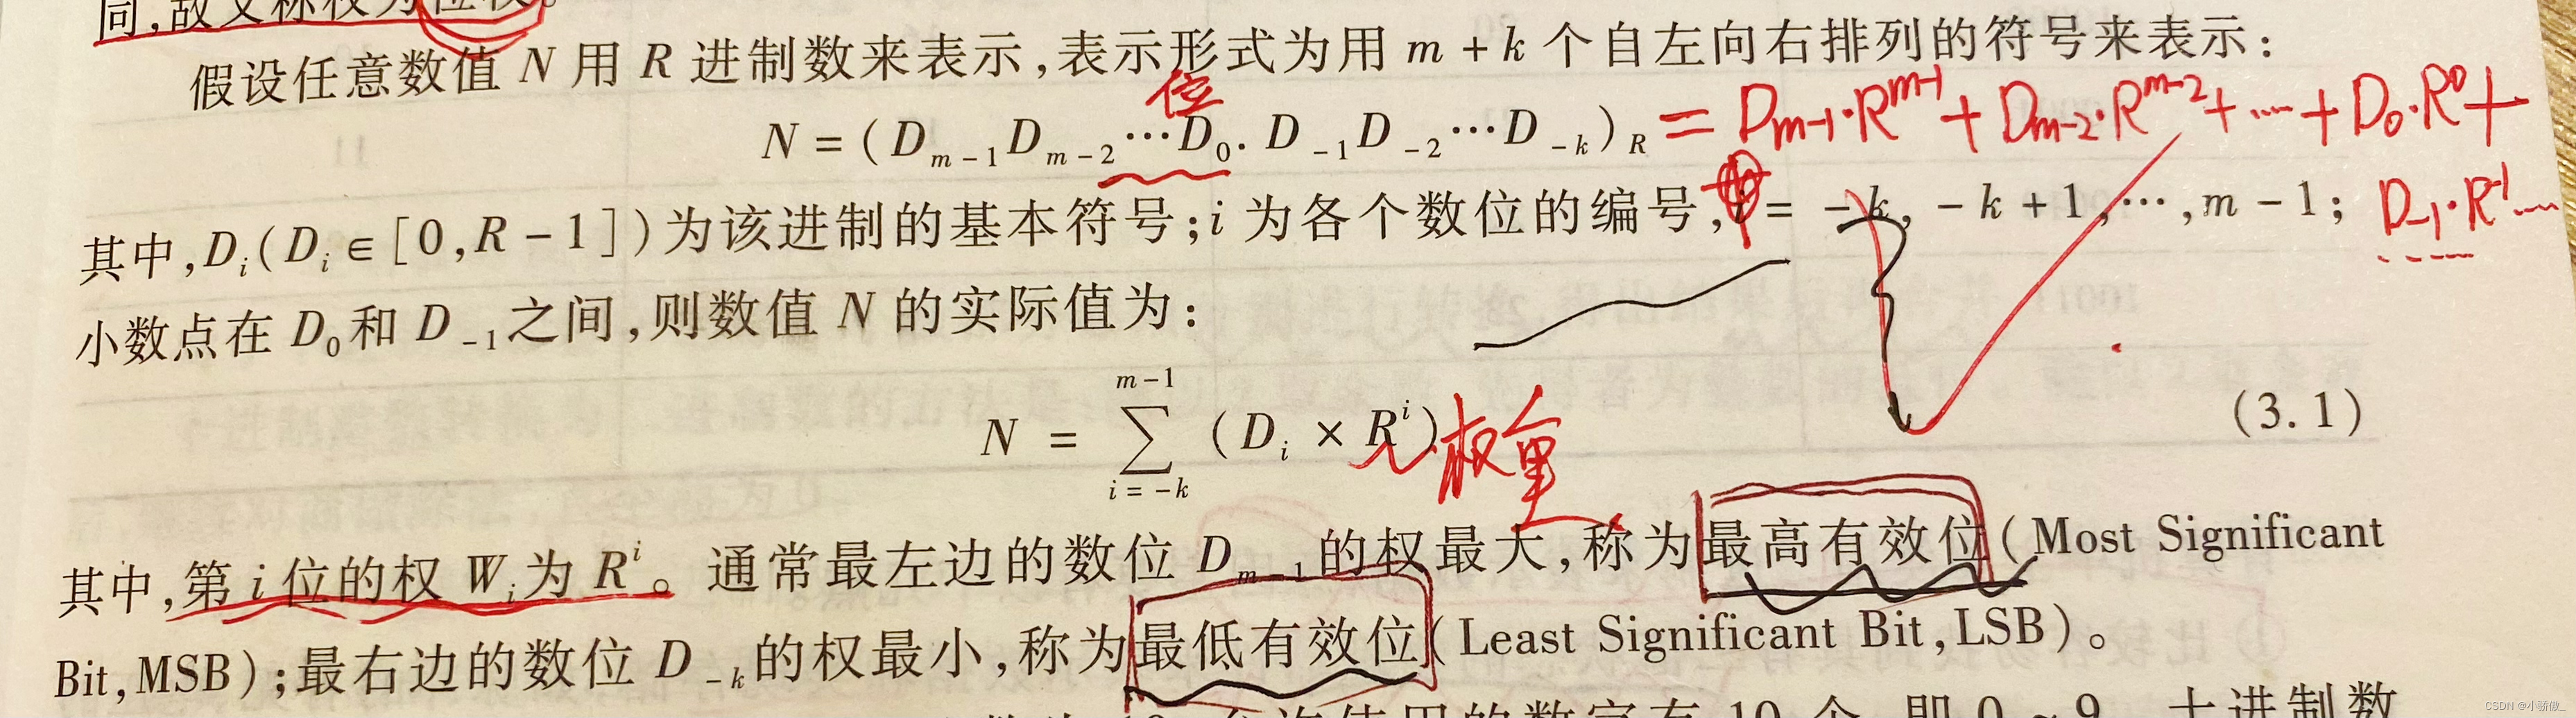 同,故又称权为位权。
假设任意数值 N 用 R 进制数来表示,表示形式为用 m + k 个自左向右排列的符号来表示:
位
N = ( D_{m-1} D_{m-2} ⋯ D_0 . D_{-1} D_{-2} ⋯ D_{-k} )_R = D_{m-1}·R^{m-1} + D_{m-2}·R^{m-2} + ⋯ + D_0·R^0 +
其中,D_i( D_i ∈ [ 0,R - 1 ] ) 为该进制的基本符号;i 为各个数位的编号,i = - k, - k + 1,⋯,m - 1; D_{-1}·R^{-1} ⋯
小数点在 D_0 和 D_{-1} 之间,则数值 N 的实际值为:
N = \sum_{i=-k}^{m-1} ( D_i × R^i ) 权重 (3.1)
其中,第 i 位的权 W_i 为 R^i。通常最左边的数位 D_{m-1} 的权最大,称为最高有效位(Most Significant
Bit,MSB);最右边的数位 D_{-k} 的权最小,称为最低有效位(Least Significant Bit,LSB)。
10 允许使用的数字有 10 个,即 0 ~ 9。十进制数
CSDN @小骄傲_